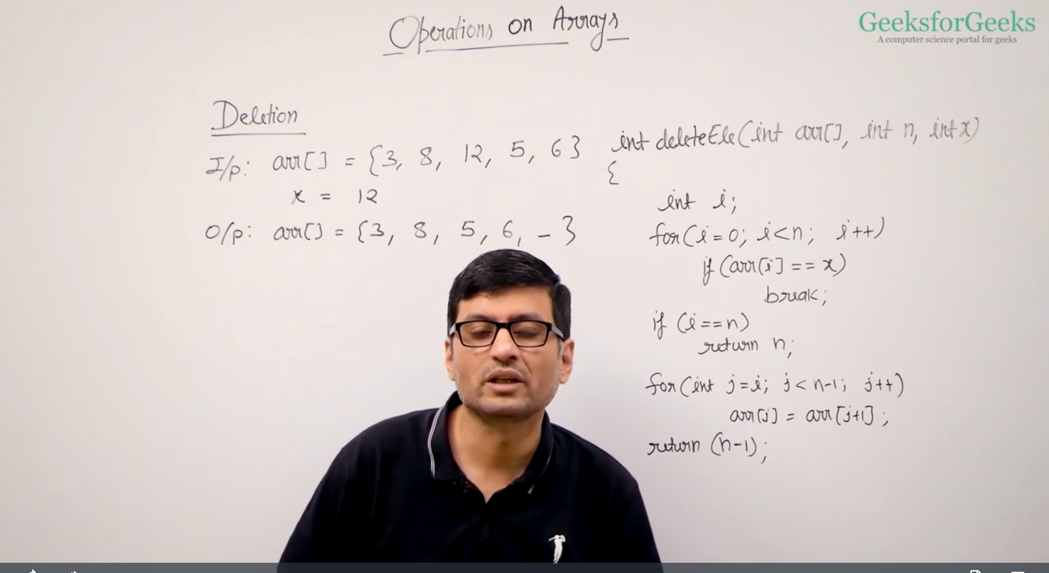 Operations on Arrays
GeeksforGeeks
A computer science portal for geeks
Deletion
I/p: arr[] = {3, 8, 12, 5, 6}
x = 12
O/p: arr[] = {3, 8, 5, 6, _ }
int deleteEle(int arr[], int n, int x)
{
int i;
for(i=0; i<n; i++)
if (arr[i] == x)
break;
if (i==n)
return n;
for(int j=i; j<n-1; j++)
arr[j] = arr[j+1];
return (n-1);